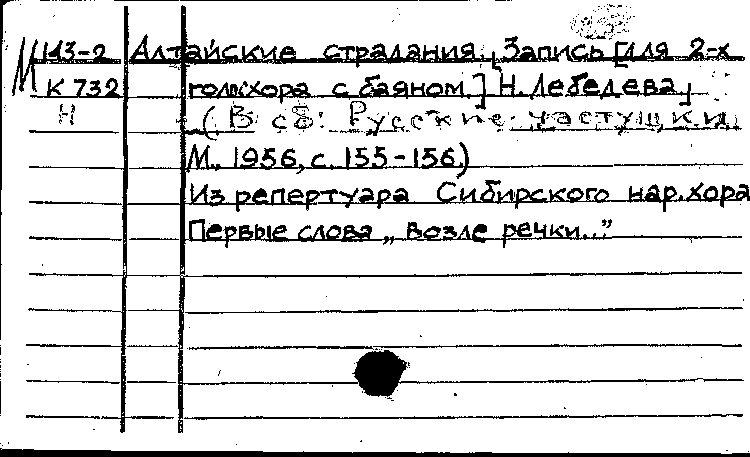 М 143-2 Алтайские страдания. Запись [для 2-х
К 732 гол. хора с баяном] Н. Лебедева,
Н (В сб: Русские частушки.
М., 1956, с. 155-156)
Из репертуара Сибирского нар. хора
Первые слова „Возле речки..."